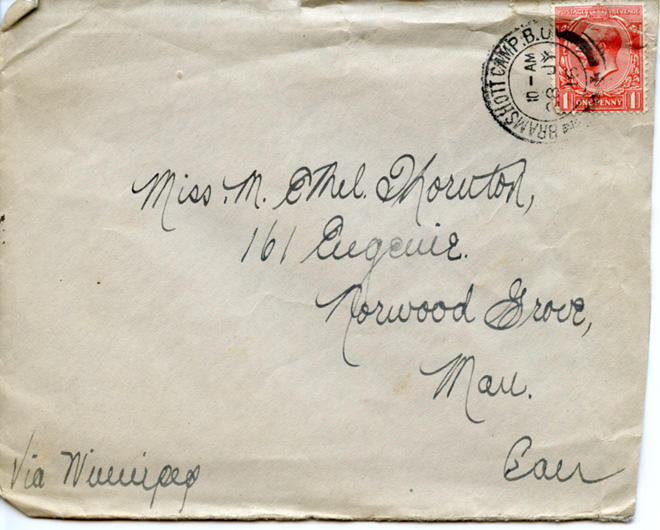 BRAMSHOTT CAMP. B.O.
10 - AM
28 JY
16
POSTAGE REVENUE
1 ONE PENNY 1
Miss. M. Ethel. Thornton,
161 Eugenie.
Norwood Grove,
Man.
Can
Via Winnipeg